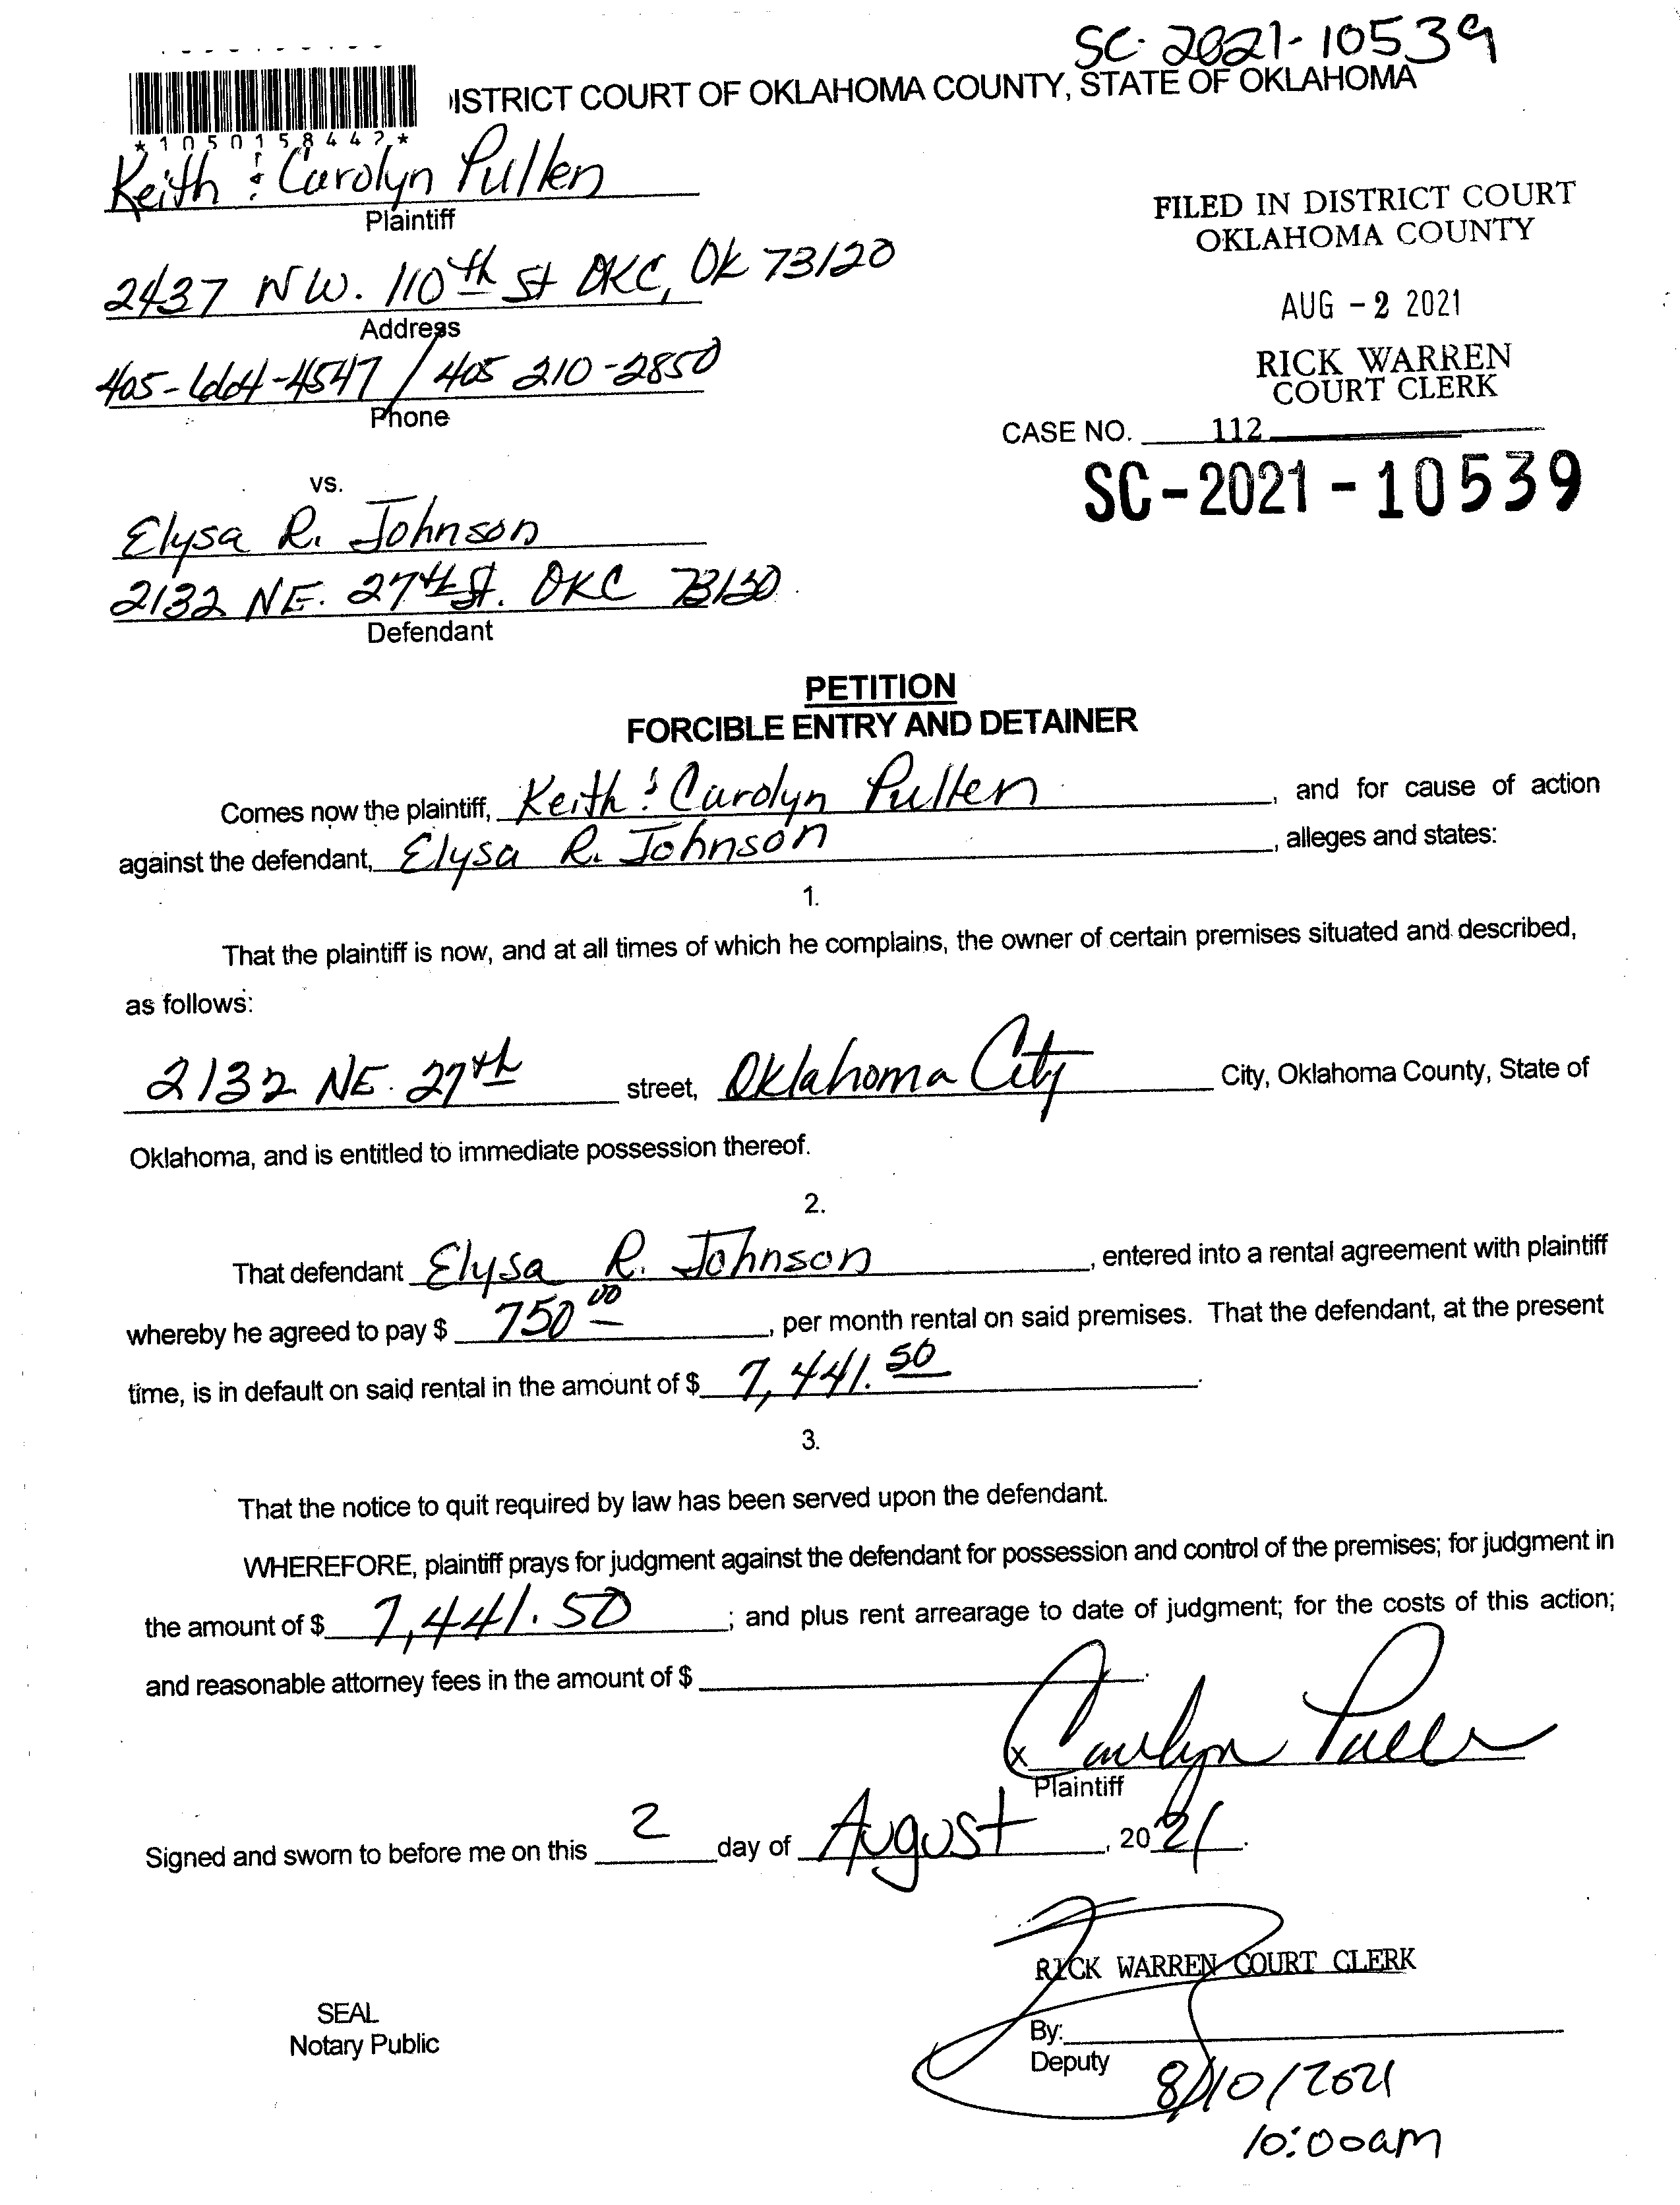 SC-2021-10539
ISTRICT COURT OF OKLAHOMA COUNTY, STATE OF OKLAHOMA
*1050158442*
Keith & Carolyn Pullen
Plaintiff
FILED IN DISTRICT COURT
OKLAHOMA COUNTY
2437 NW. 110th St OKC, OK 73120
Address
AUG - 2 2021
405-664-4547 / 405 210-2850
Phone
RICK WARREN
COURT CLERK
CASE NO. 112
SC-2021-10539
vs.
Elysa R. Johnson
2132 NE. 27th St. OKC
Defendant
PETITION
FORCIBLE ENTRY AND DETAINER
Comes now the plaintiff, Keith & Carolyn Pullen, and for cause of action
against the defendant, Elysa R. Johnson, alleges and states:
1.
That the plaintiff is now, and at all times of which he complains, the owner of certain premises situated and described,
as follows:
2132 NE. 27th street, Oklahoma City City, Oklahoma County, State of
Oklahoma, and is entitled to immediate possession thereof.
2.
That defendant Elysa R. Johnson, entered into a rental agreement with plaintiff
whereby he agreed to pay $ 750 00, per month rental on said premises. That the defendant, at the present
time, is in default on said rental in the amount of $ 7,441.50.
3.
That the notice to quit required by law has been served upon the defendant.
WHEREFORE, plaintiff prays for judgment against the defendant for possession and control of the premises; for judgment in
the amount of $ 7,441.50; and plus rent arrearage to date of judgment; for the costs of this action;
and reasonable attorney fees in the amount of $
x Carolyn Pullen
Plaintiff
Signed and sworn to before me on this 2 day of August, 2021.
RICK WARREN COURT CLERK
SEAL
Notary Public
By:
Deputy
8/10/2021
10:00am